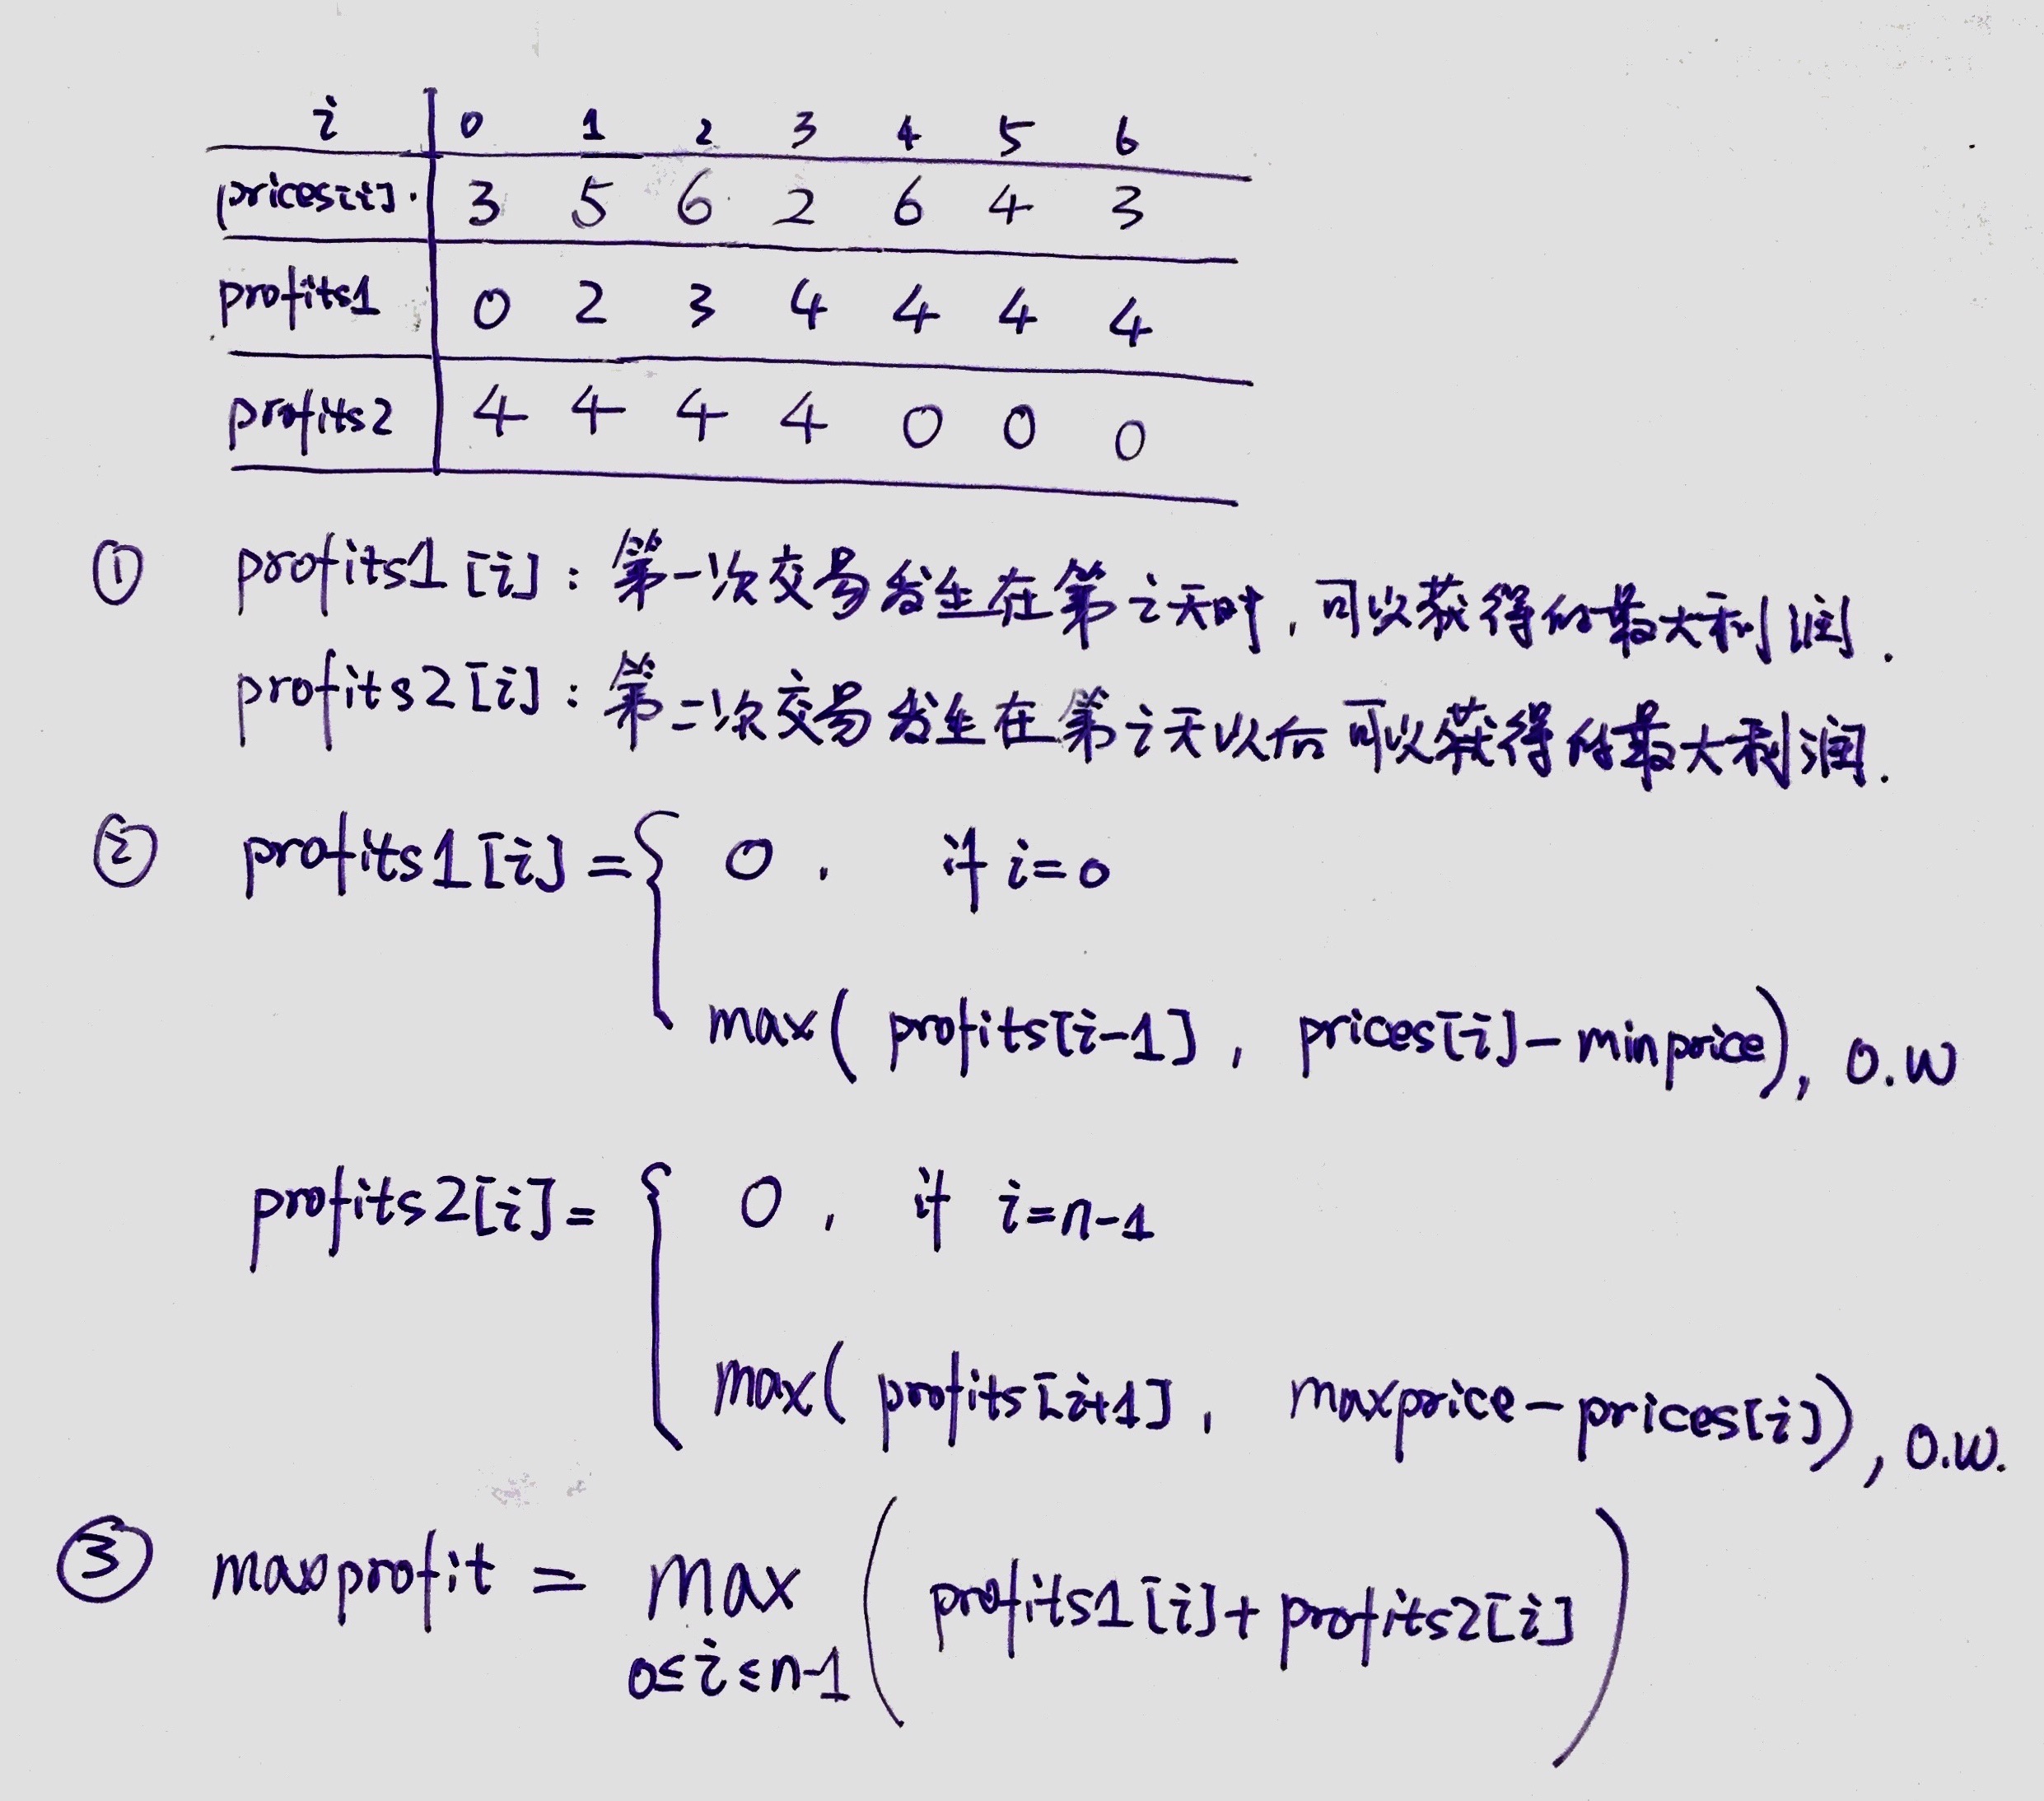 i 0 1 2 3 4 5 6
prices[i]. 3 5 6 2 6 4 3
profits1 0 2 3 4 4 4 4
profits2 4 4 4 4 0 0 0
① profits1[i]: 第一次交易发生在第i天时,可以获得的最大利润.
profits2[i]: 第二次交易发生在第i天以后可以获得的最大利润.
② profits1[i]={ 0. if i=0
max( profits[i-1], prices[i]-minprice), O.W
profits2[i]= { 0, if i=n-1
max( profits[i+1], maxprice-prices[i]), O.W.
③ maxprofit = max ( profits1[i]+profits2[i] )
0≤i≤n-1